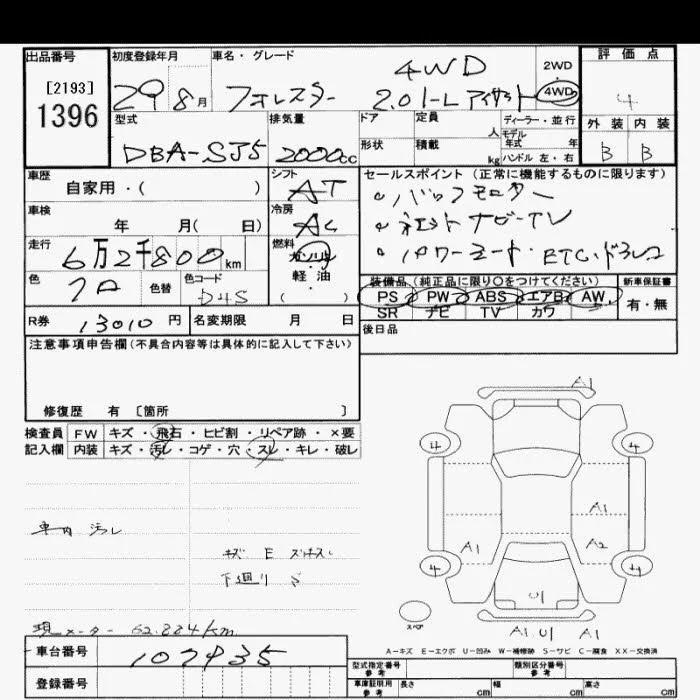 出品番号 初度登録年月 車名・グレード 評価点
[2193]
1396
29 8月 フォレスター 4WD 2.0i-L アイサイト
2WD
4WD
4
型式 排気量 ドア 定員 人 ディーラー・並行
モデル年式 年
外装 内装
DBA-SJ5 2000cc 形状 積載 kg ハンドル 左・右
B B
車歴 シフト セールスポイント(正常に機能するものに限ります)
自家用・( ) AT
・バックモニター
車検 冷房
年 月( 日) AC
・ナビ・TV
走行 燃料
6万2千800km ガソリン
軽油
( )
・パワーシート・ETC・ドラレコ
色 色替 色コード
クロ D4S
装備品(純正品に限り○をつけてください) 新車保証書
PS PW ABS エアB AW
SR ナビ TV カワ
有・無
R券 13010円 名変期限 月 日
後日品
注意事項申告欄(不具合内容等は具体的に記入して下さい)
修復歴 有 〔箇所 〕
検査員 FW キズ・飛石・ヒビ割・リペア跡・×要
記入欄 内装 キズ・汚レ・コゲ・穴・スレ・キレ・破レ
A1
4 4
A1
A1 A2
4 4
U1
スペア
A1 U1 A1
車内 汚レ
キズ E
下廻り S
現メーター 62.884km
A-キズ E-エクボ U-凹み W-補修跡 S-サビ C-腐食 XX-交換済
車台番号 107935
登録番号
型式指定番号 参考 類別区分番号 参考
車庫証明用 参考 長さ cm 幅 cm 高さ cm